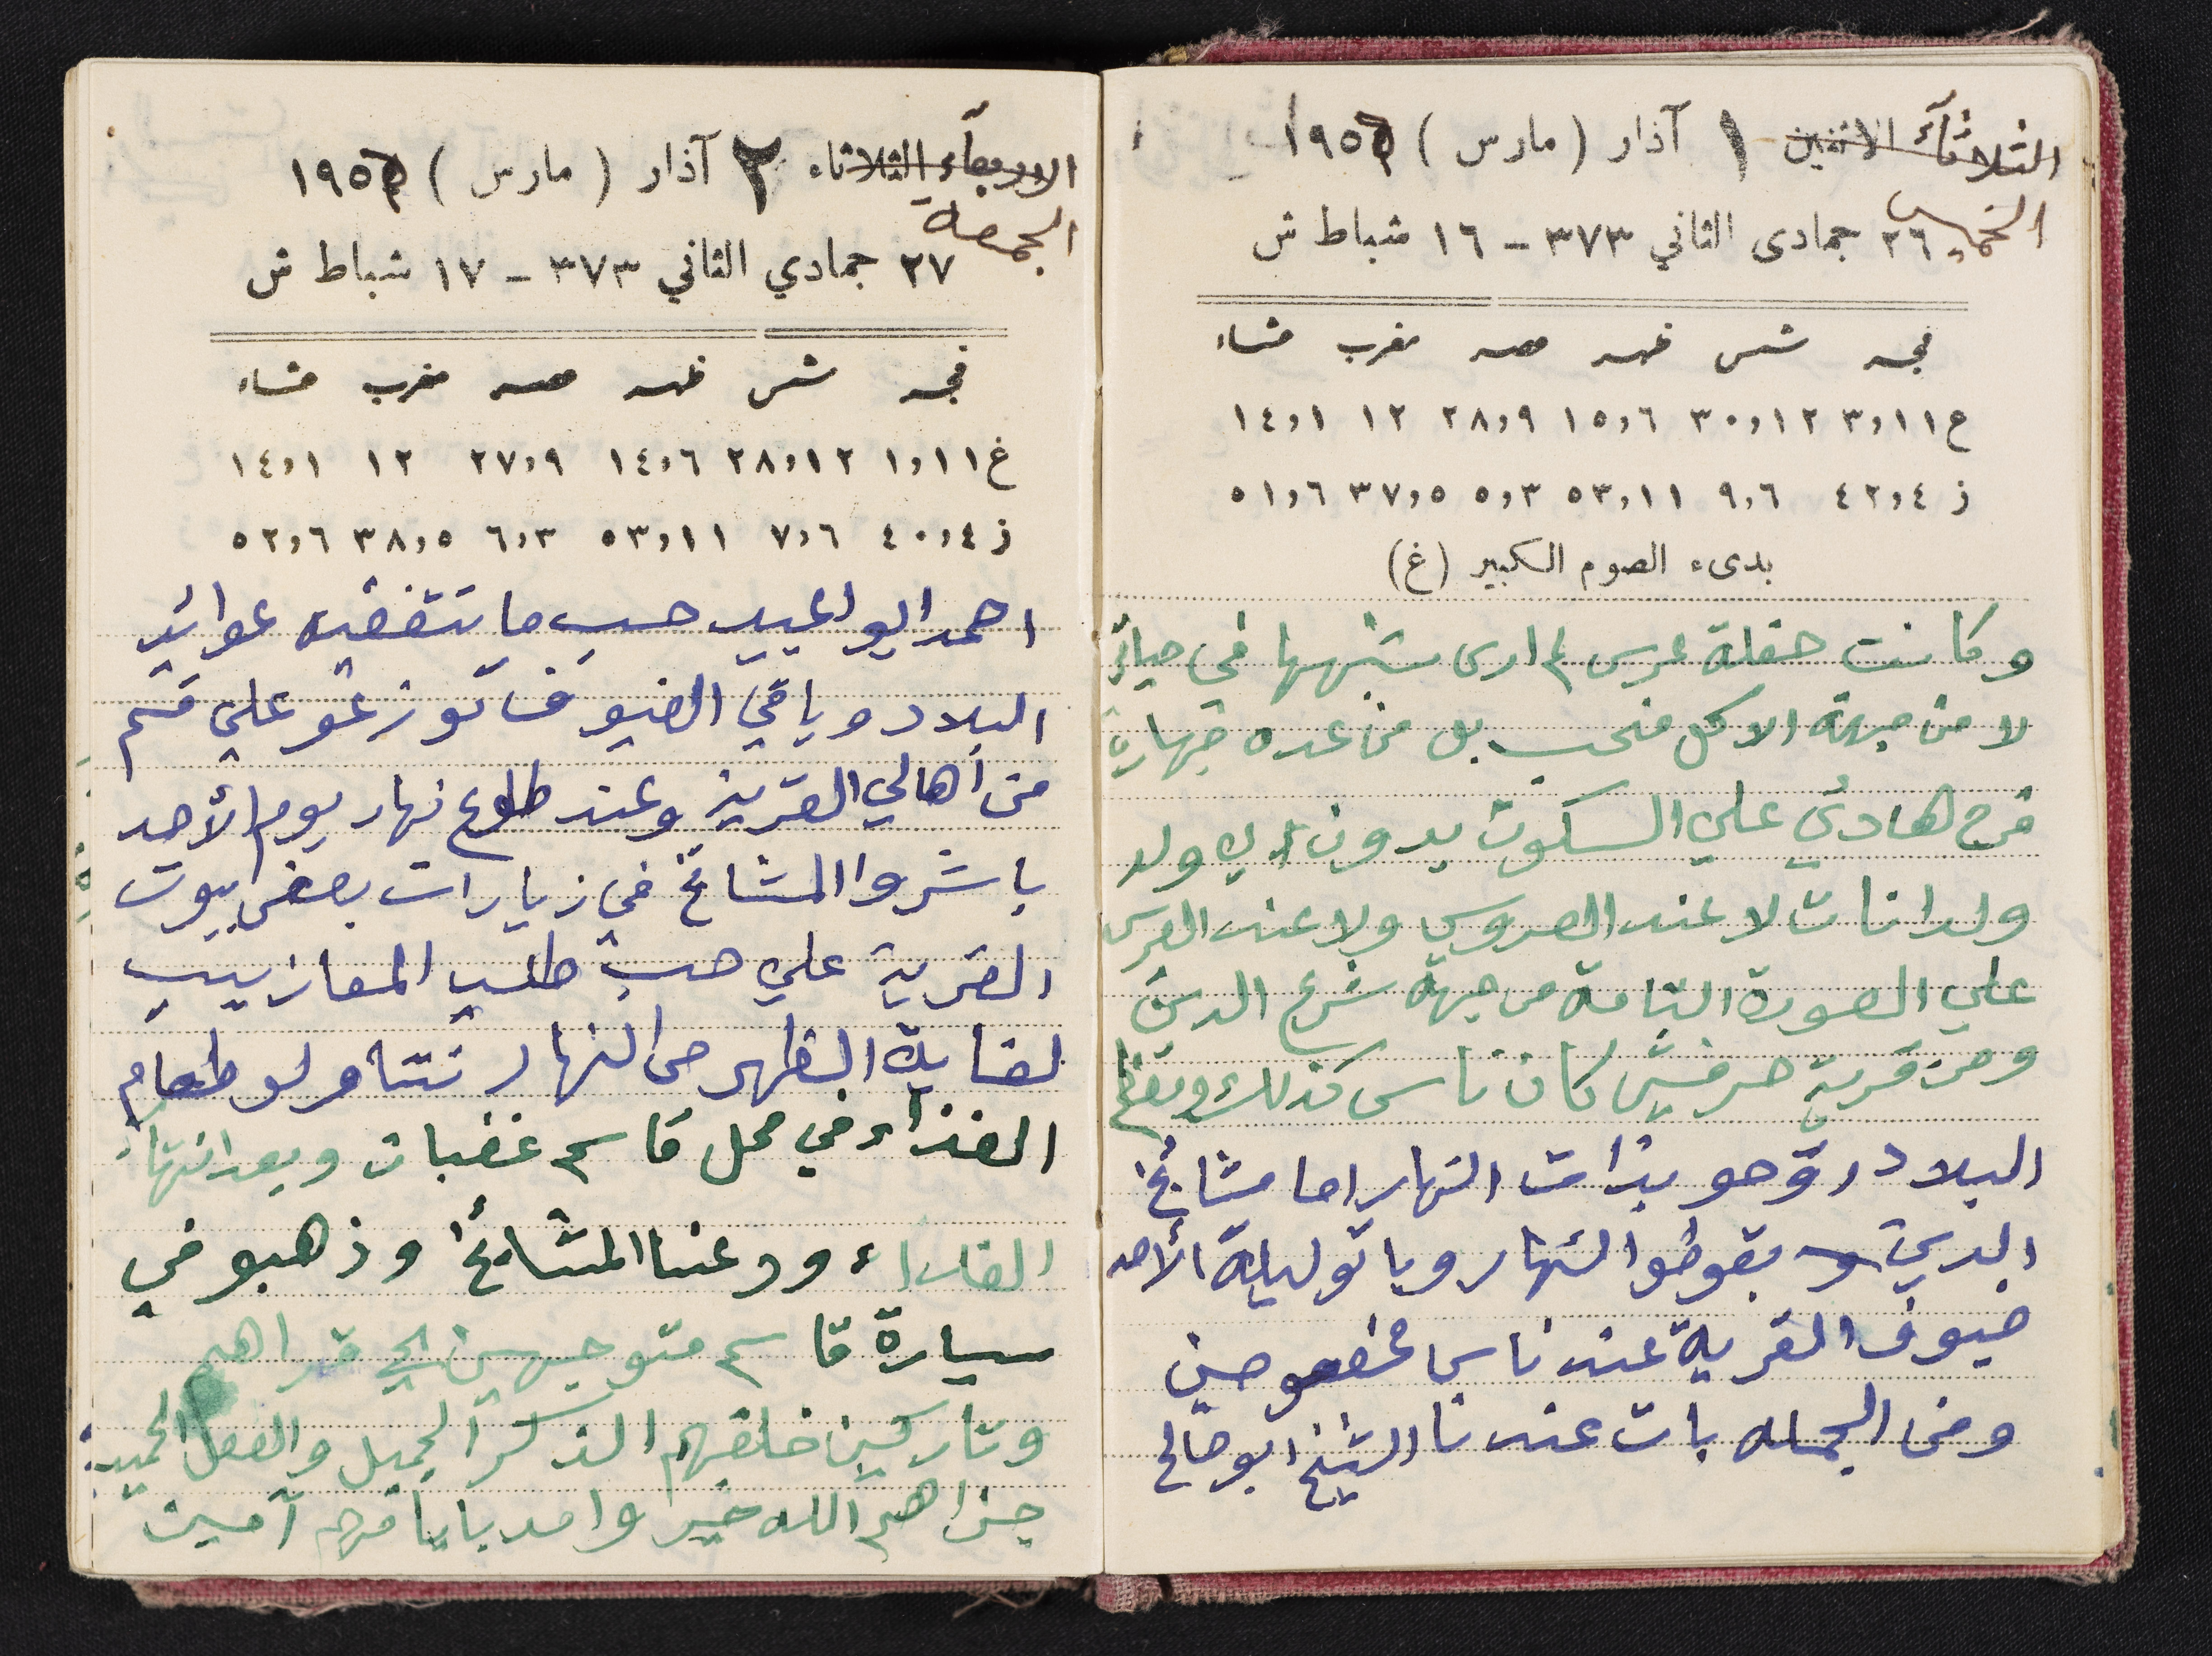 الثلاثآء الاثنين ١ آذار ( مارس ) ١٩٥٦
الخميس
٢٦ جمادى الثاني ٣٧٣ - ١٦ شباط ش
فجر شمس ظهر عصر مغرب عشاء
ع ٣,١١ ٣٠,١٢ ١٥,٦ ٢٨,٩ ١٢ ١٤,١
ز ٤٢,٤ ٩,٦ ٥٣,١١ ٥,٣ ٣٧,٥ ٥١,٦
بدىء الصوم الكبير (غ)
وكانت حفلة عرس لم ارى شبهها في حياتي
لا من جهة الاكل فحسب بل من عده جهارية
فرح هادئ على السكوت بدون اي ولد
ولدانات لا عند العروس ولا عند العريس
على الصورة التامة من جهة شرع الدين
ومن قرية حرفيش كان ناس كذلك ومعظم
البلاد روحو بذات النهار اما مشائخ
الدين و بقوطوا النهار وباتو ليلة الأحد
ضيوف القرية عند ناس مخصوصين
ومن الجمله بات عندنا الشيخ ابو صالح
الاربعآء الثلاثاء ٢ آذار ( مارس ) ١٩٥٦
الجمعة
٢٧ جمادي الثاني ٣٧٣ - ١٧ شباط ش
فجر شمس ظهر عصر مغرب عشاء
غ ١,١١ ٢٨,١٢ ١٤,٦ ٢٧,٩ ١٢ ١٤,١
ز ٤٠,٤ ٧,٦ ٥٣,١١ ٦,٣ ٣٨,٥ ٥٢,٦
احمد ابو اعبيد حسب ما يتقضيه عوائد
البلاد وباقي الضيوف توزعو على قسم
من اهالي القرية وعند طلوع نهار يوم الأحد
باشروا المشائخ في زيارات بعض بيوت
القرية على حسب طلب المعازيب
لغاية الظهر من النهار تناولو طعام
الغذاء في محل قاسم غضبان وبعد انتهاء
الغداء ودعنا المشائخ وذهبو في
سيارة قاسم متوجهين الى قراهم
وتاركين خلفهم الذكر الجميل والفعل الحميد
جزاهم الله خير وامد باياقهم آمين